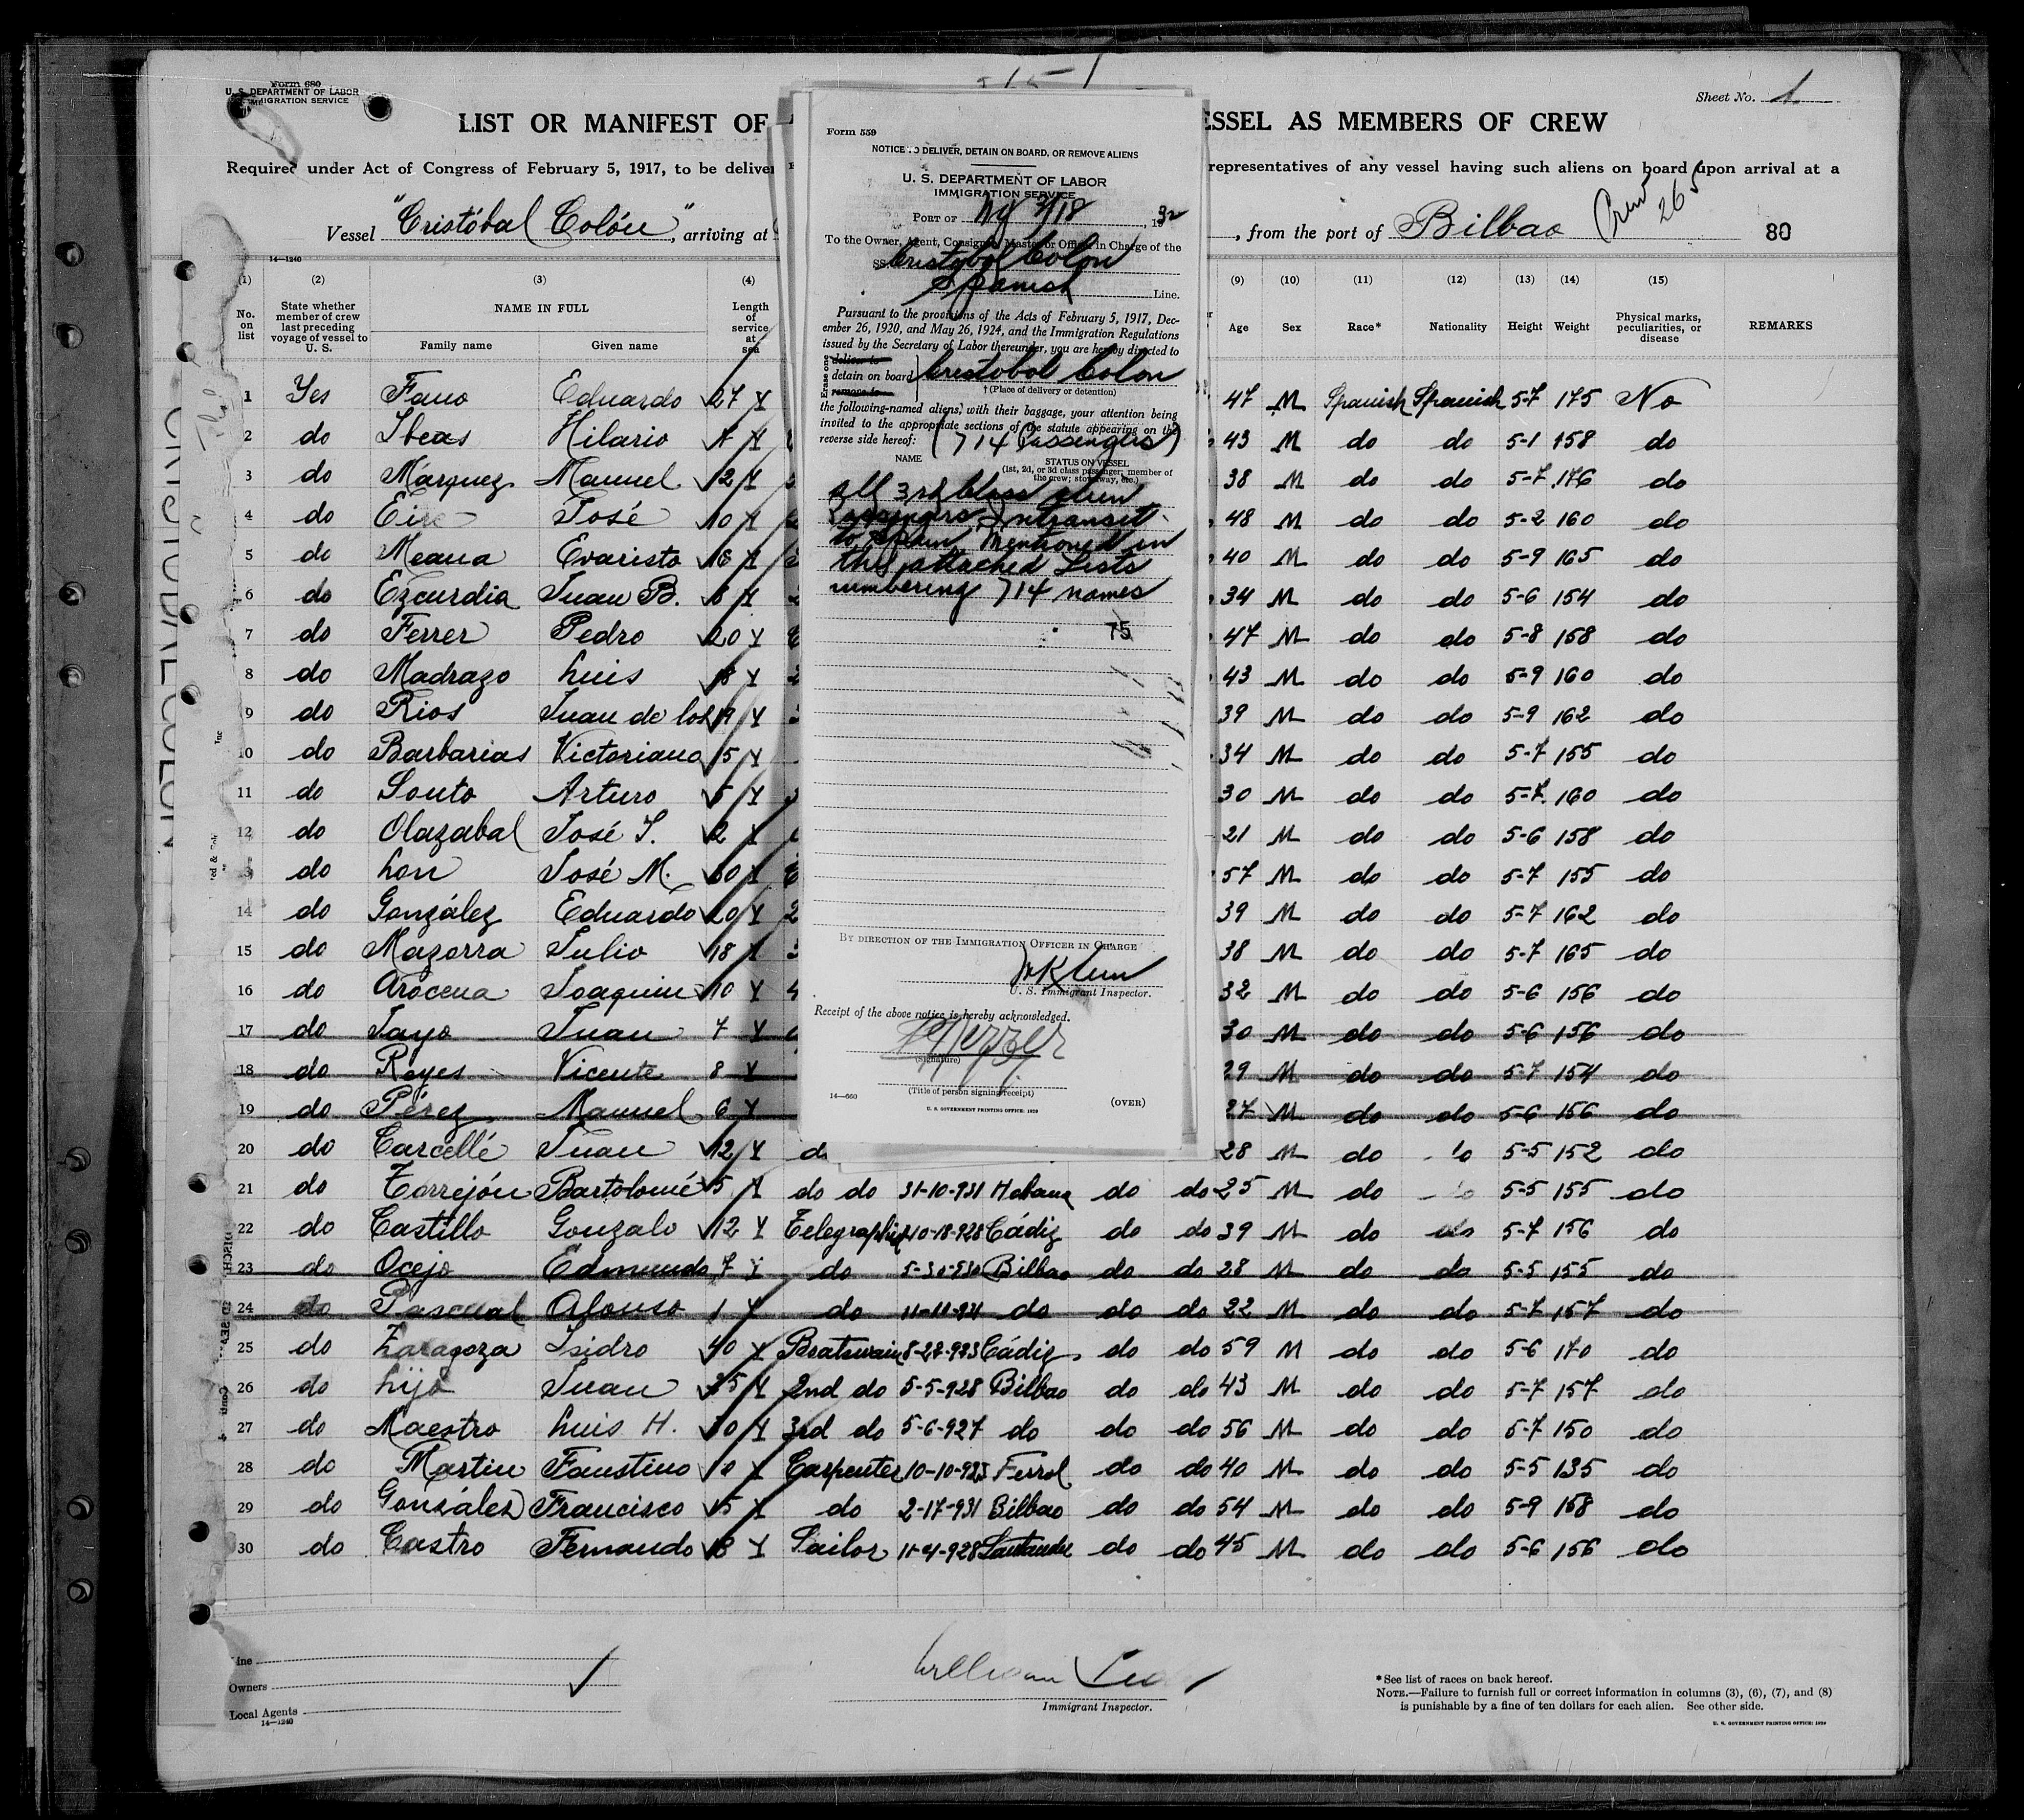 Form 680
U. S. DEPARTMENT OF LABOR
IMMIGRATION SERVICE
Sheet No. 1
LIST OR MANIFEST OF
ESSEL AS MEMBERS OF CREW
Required under Act of Congress of February 5, 1917, to be deliver
representatives of any vessel having such aliens on board upon arrival at a
Vessel "Cristóbal Colón", arriving at
, from the port of Bilbao
Crew 265
80
14—1240
(1) (2) (3) (4)
No. on list
State whether member of crew last preceding voyage of vessel to U. S.
NAME IN FULL
Family name Given name
Length of service at sea
(9) (10) (11) (12) (13) (14) (15)
Age Sex Race* Nationality Height Weight Physical marks, peculiarities, or disease REMARKS
1 Yes Fano Eduardo 27 Y 47 M Spanish Spanish 5-7 175 No
2 do Ibeas Hilario Y 43 M do do 5-1 158 do
3 do Márquez Manuel 12 Y 38 M do do 5-7 176 do
4 do José 10 Y 48 M do do 5-2 160 do
5 do Meana Evaristo 16 Y 40 M do do 5-9 165 do
6 do Ezcurdia Juan B. Y 34 M do do 5-6 154 do
7 do Ferrer Pedro 20 Y 47 M do do 5-8 158 do
8 do Madrazo Luis 18 Y 43 M do do 5-9 160 do
9 do Rios Juan de los 19 Y 39 M do do 5-9 162 do
10 do Barbarias Victoriano 15 Y 34 M do do 5-7 155 do
11 do Souto Arturo 5 Y 30 M do do 5-7 160 do
12 do Olazabal José I. 2 Y 21 M do do 5-6 158 do
13 do Lon José M. 30 Y 57 M do do 5-7 155 do
14 do González Eduardo 20 Y 39 M do do 5-7 162 do
15 do Mazorra Julio 18 Y 38 M do do 5-7 165 do
16 do Arocena Joaquin 10 Y 32 M do do 5-6 156 do
17 do Tayo Juan 7 Y 30 M do do 5-6 156 do
18 do Reyes Vicente 8 Y 29 M do do 5-7 154 do
19 do Pérez Manuel 6 Y 27 M do do 5-6 156 do
20 do Carcellé Juan 12 Y do 28 M do do 5-5 152 do
21 do Torrejón Bartolomé 5 Y do do 31-10-931 Habana do do 25 M do do 5-5 155 do
22 do Castillo Gonzalo 12 Y Telegraphist 10-18-928 Cádiz do do 39 M do do 5-7 156 do
23 do Ocejo Edmundo 7 Y do 5-30-930 Bilbao do do 28 M do do 5-5 155 do
24 do Pascual Alfonso 1 Y do do do do 22 M do do 5-7 157 do
25 do Zaragoza Isidro 40 Y Boatswain 8-22-923 Cádiz do do 59 M do do 5-6 170 do
26 do Lijó Juan 25 Y 2nd do 5-5-928 Bilbao do do 43 M do do 5-7 157 do
27 do Maestro Luis H. 30 Y 3rd do 5-6-927 do do do 56 M do do 5-7 150 do
28 do Martin Faustino 10 Y Carpenter 10-10-925 Ferrol do do 40 M do do 5-5 135 do
29 do González Francisco 15 Y do 2-17-931 Bilbao do do 54 M do do 5-9 158 do
30 do Castro Fernando 18 Y Sailor 11-4-928 Santander do do 45 M do do 5-6 156 do
Line
Owners
Local Agents
14—1240
William
Immigrant Inspector.
*See list of races on back hereof.
NOTE.—Failure to furnish full or correct information in columns (3), (6), (7), and (8)
is punishable by a fine of ten dollars for each alien. See other side.
U. S. GOVERNMENT PRINTING OFFICE: 1929
CRISTOBAL COLON
Form 559
NOTICE TO DELIVER, DETAIN ON BOARD, OR REMOVE ALIENS
U. S. DEPARTMENT OF LABOR
IMMIGRATION SERVICE
PORT OF NY 2/18, 1932
To the Owner, Agent, Consignee, Master or Officer in Charge of the
SS. Cristobol Colon
Spanish Line.
Pursuant to the provisions of the Acts of February 5, 1917, Dec-
ember 26, 1920, and May 26, 1924, and the Immigration Regulations
issued by the Secretary of Labor thereunder, you are hereby directed to
Erase one
deliver to
detain on board Cristobol Colon
remove to
† (Place of delivery or detention)
the following-named aliens, with their baggage, your attention being
invited to the appropriate sections of the statute appearing on the
reverse side hereof: (714 Passengers)
NAME STATUS ON VESSEL
(1st, 2d, or 3d class passenger; member of
the crew; stowaway, etc.)
All 3rd Class alien
Passengers Intransit
to Spain Mentioned in
the attached Lists
numbering 714 names
75
BY DIRECTION OF THE IMMIGRATION OFFICER IN CHARGE
U. S. Immigrant Inspector.
Receipt of the above notice is hereby acknowledged.
(Signature)
(Title of person signing receipt)
14—660
U. S. GOVERNMENT PRINTING OFFICE: 1929
(OVER)